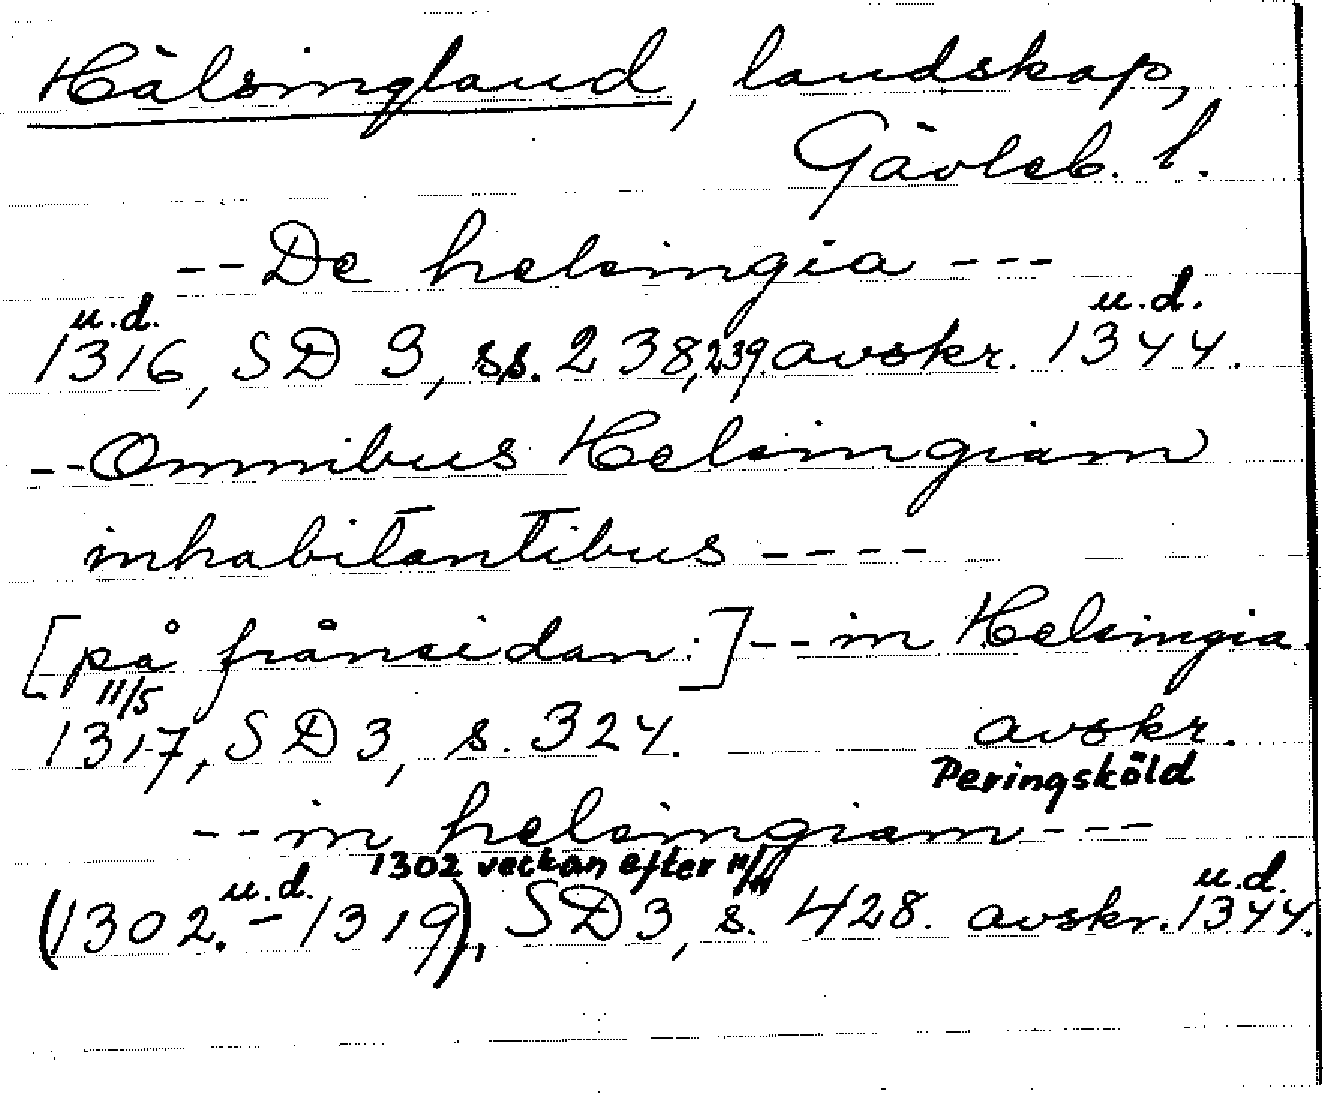 Hälsingland, landskap,
Gävleb. l.
-- De helsingia ---
u.d. u.d.
1316, SD 3, ss. 238,239. avskr. 1344.
-- Omnibus Helsingiam
inhabitantibus ----
[på frånsidan:] -- in Helsingia.
11/5
1317, SD 3, s. 324. avskr.
Peringsköld
-- in helsingiam ---
1302 veckan efter 11/11
u.d. u.d.
(1302. - 1319), SD 3, s. 428. avskr. 1344.